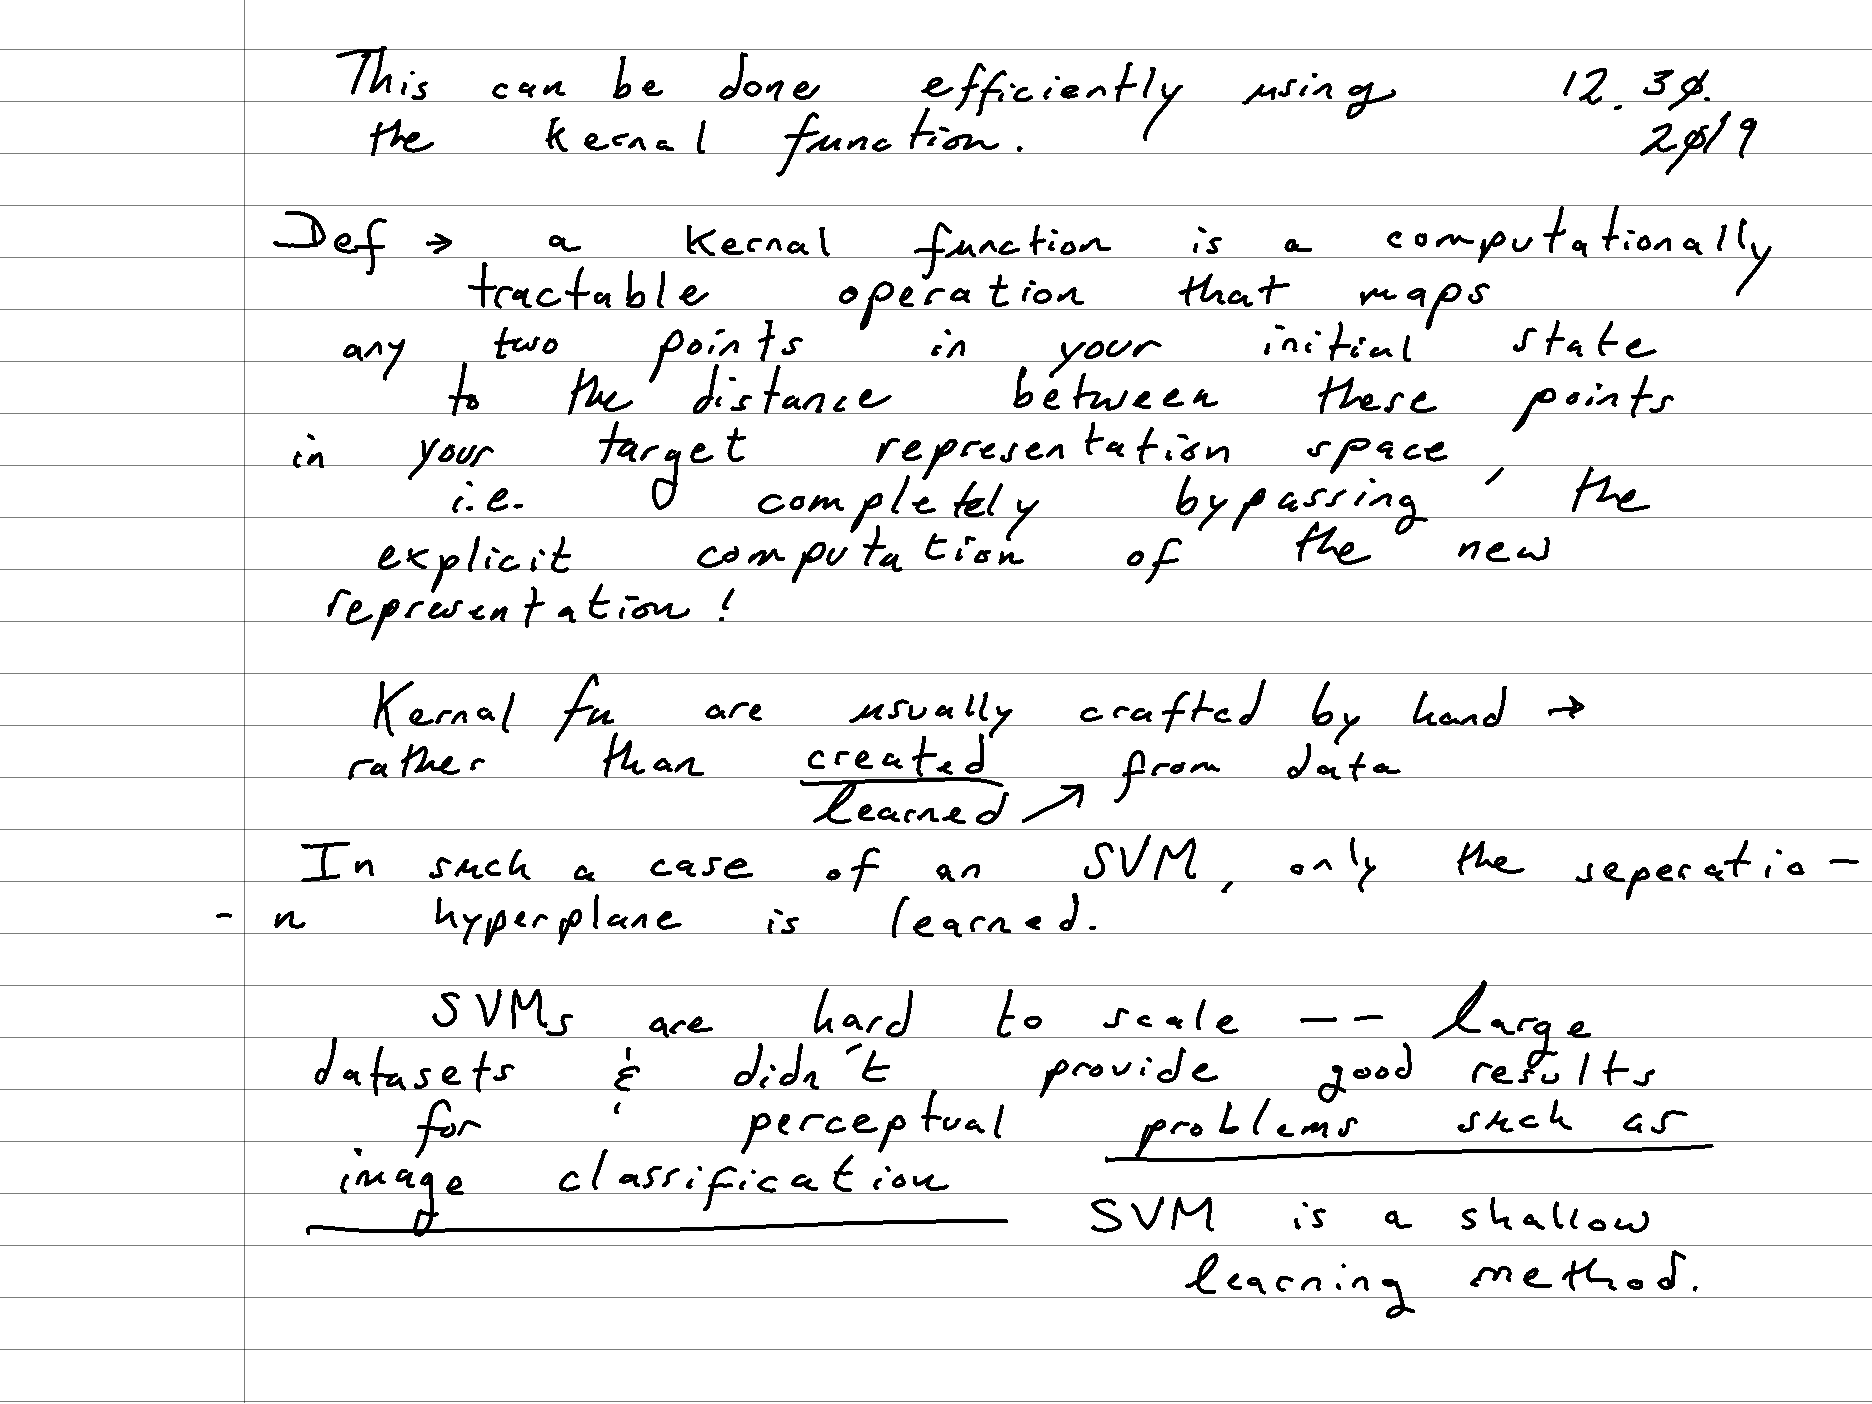 This can be done efficiently using 12.30.
the kernal function. 2019
Def → a kernal function is a computationally
tractable operation that maps
any two points in your initial state
to the distance between these points
in your target representation space,
i.e. completely bypassing the
explicit computation of the new
representation!
Kernal fn are usually crafted by hand →
rather than created from data
learned ↗
In such a case of an SVM, only the seperatio-
-n hyperplane is learned.
SVMs are hard to scale -- large
datasets & didn't provide good results
for perceptual problems such as
image classification
SVM is a shallow
learning method.